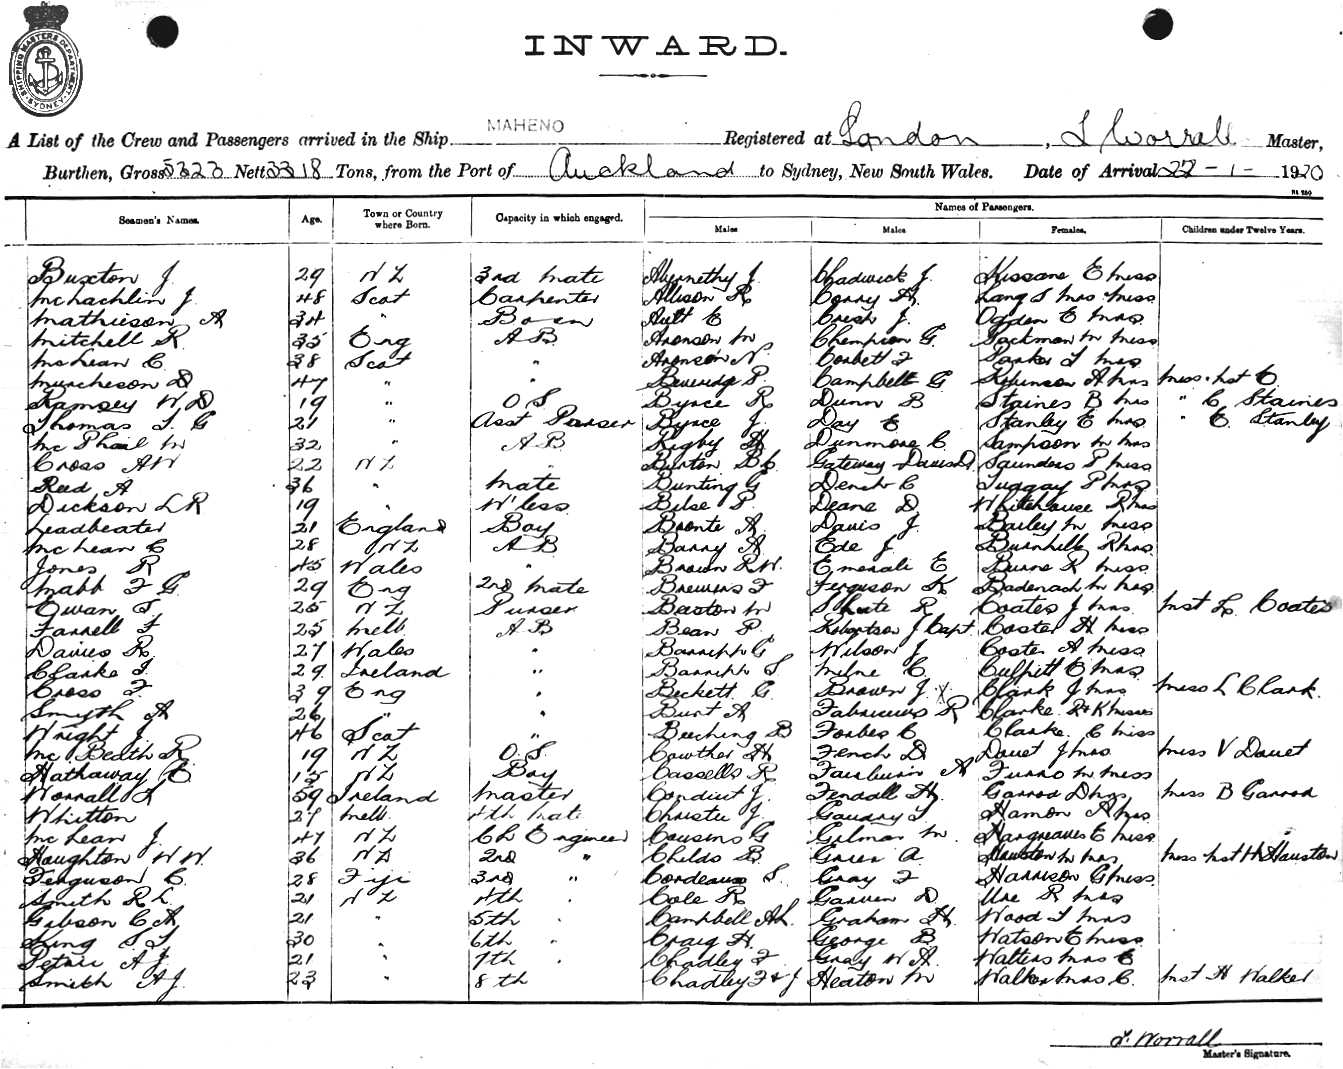 SHIPPING MASTERS DEPARTMENT SYDNEY
INWARD.
A List of the Crew and Passengers arrived in the Ship MAHENO Registered at London, T Worrall Master,
Burthen, Gross 5323 Nett 3318 Tons, from the Port of Auckland to Sydney, New South Wales. Date of Arrival 22-1-1920
Seamen's Names. Age. Town or Country where Born. Capacity in which engaged. Names of Passengers.
Males Males Females. Children under Twelve Years.
Buxton J. 29 NZ 3rd Mate Abernethy J. Chadwick J. Kissane E Miss
McLachlin J. 48 Scot Carpenter Allison R Corry A. Lang S Mrs Miss
Mathieson A 34 " Bosn Ault E Cresh J. Ogden E Mrs
Mitchell R. 35 Eng AB Aronson M Champion G. Jackman M Miss
McLean C. 38 Scot " Aronson N. Corbett F Mrs
Murcheson D 47 " " Beveridge P. Campbell G Robinson A Mrs Miss Mst C
Ramsey W D 19 " OS Byrce R Dunn B Staines B Mrs " C Staines
Thomas T. G 21 " Asst Purser Byrce J. Day E Stanley E Mrs " E Stanley
McPhail M 32 " AB Rigby H Dunmore C. Sampson M Mrs
Cross AW 22 NZ " Burton Gateway Saunders P Miss
Reed A 36 " Mate Bunting G Dench C Tuggay P Mrs
Dickson L R 19 " W'less Bilse P. Deane D Whitehouse R Mrs
Leadbeater 21 England Boy Bronte A Davis J. Bailey M Miss
McLean C 28 NZ AB Barry A Ede J Burnhill R Mrs
Jones R 45 Wales " Brown R.W. Emerali E Burns R Miss
Mabb F G. 29 Eng 2nd Mate Brewins F Ferguson K Badenach M Mrs
Cowan S 25 NZ Purser Baston M Shute R Coates J Mrs Mst L Coates
Farrell F 25 Melb AB Bean P. Robertson J Capt Coster H Miss
Davies R. 27 Wales " Barripp G Wilson J Coster A Miss
Clarke J. 29 Ireland " Barripp S Milne C. Culpitt E Mrs
Cross F. 39 Eng " Beckett G. Brown J. Clark J Mrs Miss L Clark.
Smyth A 26 " " Burt A Fabricius R Clarke R & K Misses
Wright J. 46 Scot " Beeching B Forbes C Clarke C Miss
McBeath R. 19 NZ OS Cawther H French D Douet J Mrs Miss V Douet
Hathaway C 15 NZ Boy Cassells R Fairburn A Furro M Miss
Worrall T 59 Ireland Master Conduit J. Fendall H. Garrod D Mrs Miss B Garrod
Whitton 27 Melb. 4th Mate Christie J. Gaudry T. Hamon A Mrs
McLean J. 47 NZ Ch Engineer Cousins G Gilmar M. Hargreaves E Miss
Houghton W W. 36 NZ 2nd " Childs B. Green A. Hauston M Mrs Miss Mst H Hauston
Ferguson C. 28 Fiji 3rd " Cordeaux S. Gray F Harrison G Miss
Smith R L. 21 NZ 4th " Cole R Garven D Ure R Mrs
Gibson C A 21 " 5th Campbell AL Graham H. Wood T Mrs
King S T 30 " 6th " Craig H. George B Watson E Miss
Petrie A J. 21 " 7th " Chadley F Gray W A. Walters Mrs E
Smith A J. 23 " 8th Chadley F & J Heaton M Walker Mrs C. Mst H Walker
T. Worrall
Master's Signature.